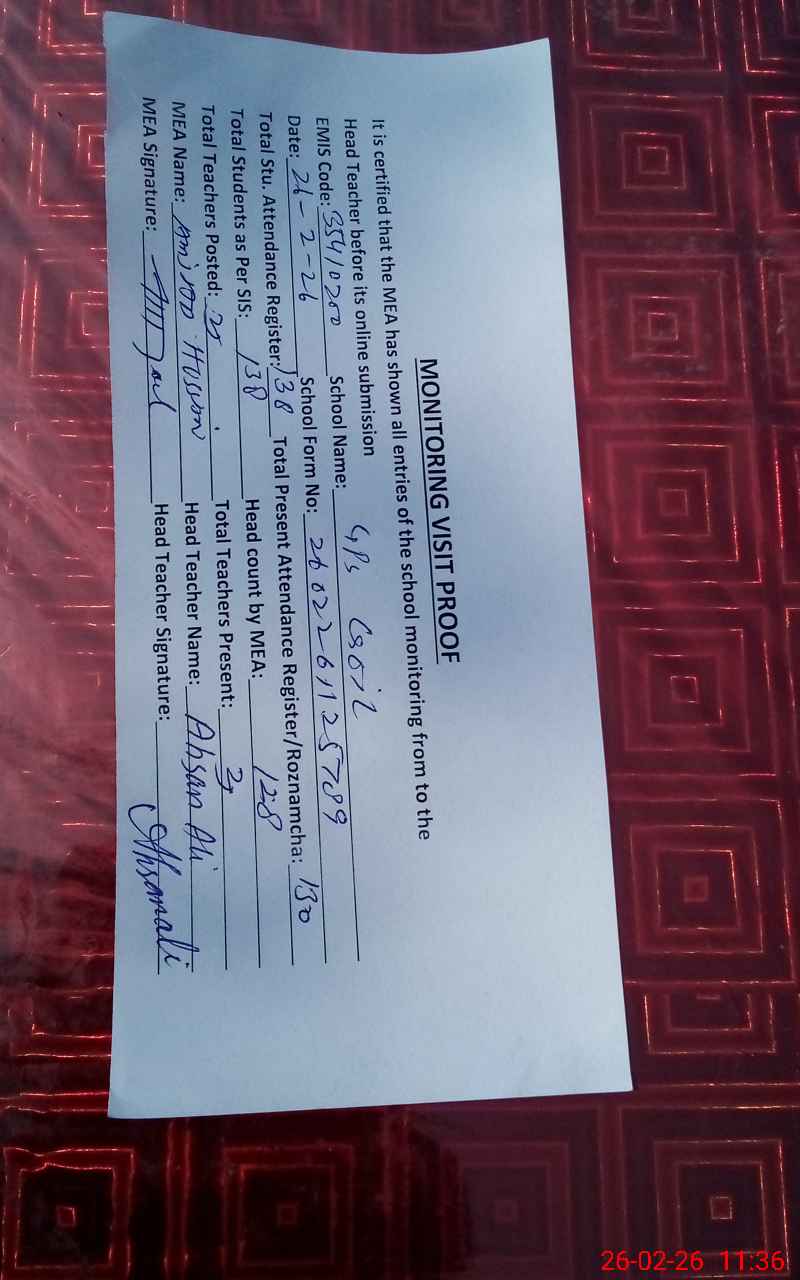 MONITORING VISIT PROOF
It is certified that the MEA has shown all entries of the school monitoring from to the
Head Teacher before its online submission
EMIS Code: 35410200 School Name: GPS
Date: 26-2-26 School Form No: 2602261125789
Total Stu. Attendance Register: 138 Total Present Attendance Register/Roznamcha: 130
Total Students as Per SIS: 138 Head count by MEA: 128
Total Teachers Posted: Total Teachers Present:
MEA Name: Hussain Head Teacher Name: Ahsan Ali
MEA Signature: Head Teacher Signature: Ahsanali
26-02-26 11:36